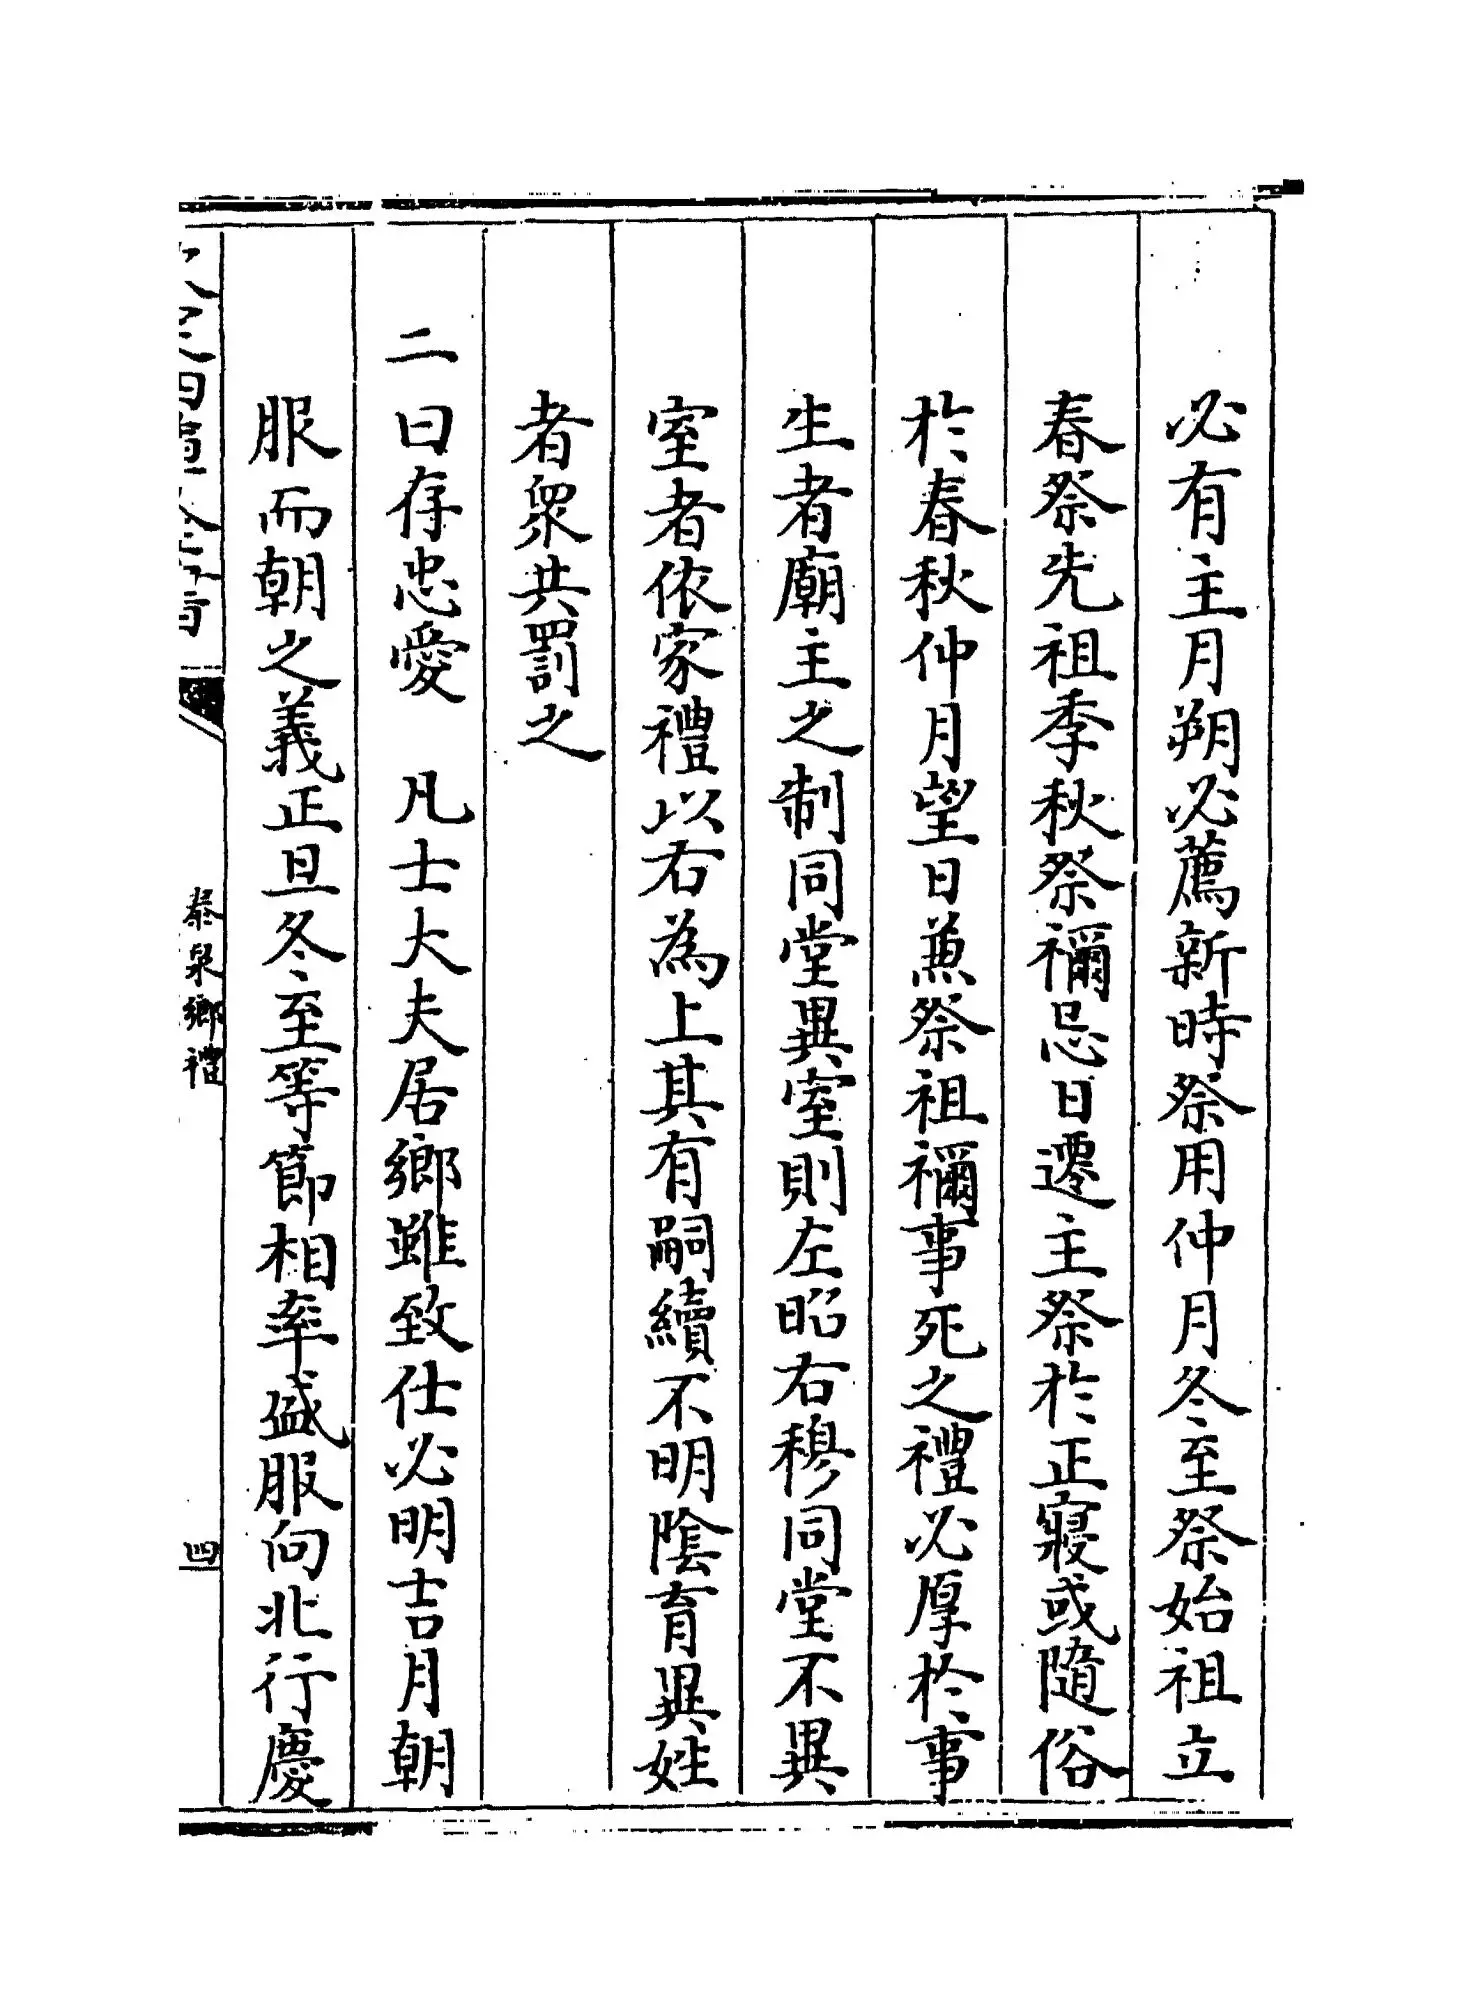 必有主月朔必薦新時祭用仲月冬至祭始祖立
春祭先祖季秋祭禰忌日遷主祭於正寢或隨俗
於春秋仲月望日兼祭祖禰事死之禮必厚於事
生者廟主之制同堂異室則左昭右穆同堂不異
室者依家禮以右為上其有嗣續不明陰育異姓
者衆共罰之
二曰存忠愛　凡士大夫居鄉雖致仕必明吉月朝
服而朝之義正旦冬至等節相率盛服向北行慶
泰泉鄉禮
四